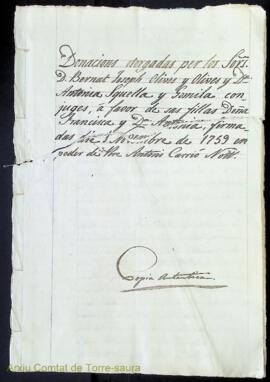 Donacions otorgadas per los Sors.
D. Bernat Joseph Olives y Olives y Da.
Antonia Squella y Gomila con
juges, a favor de sas fillas Doña
Francisca y Da. Antonia, firma
das dia de 1759 en
poder de Antoni Carrió Nott.
Copia Autentica
Arxiu Comtat de Torre-saura